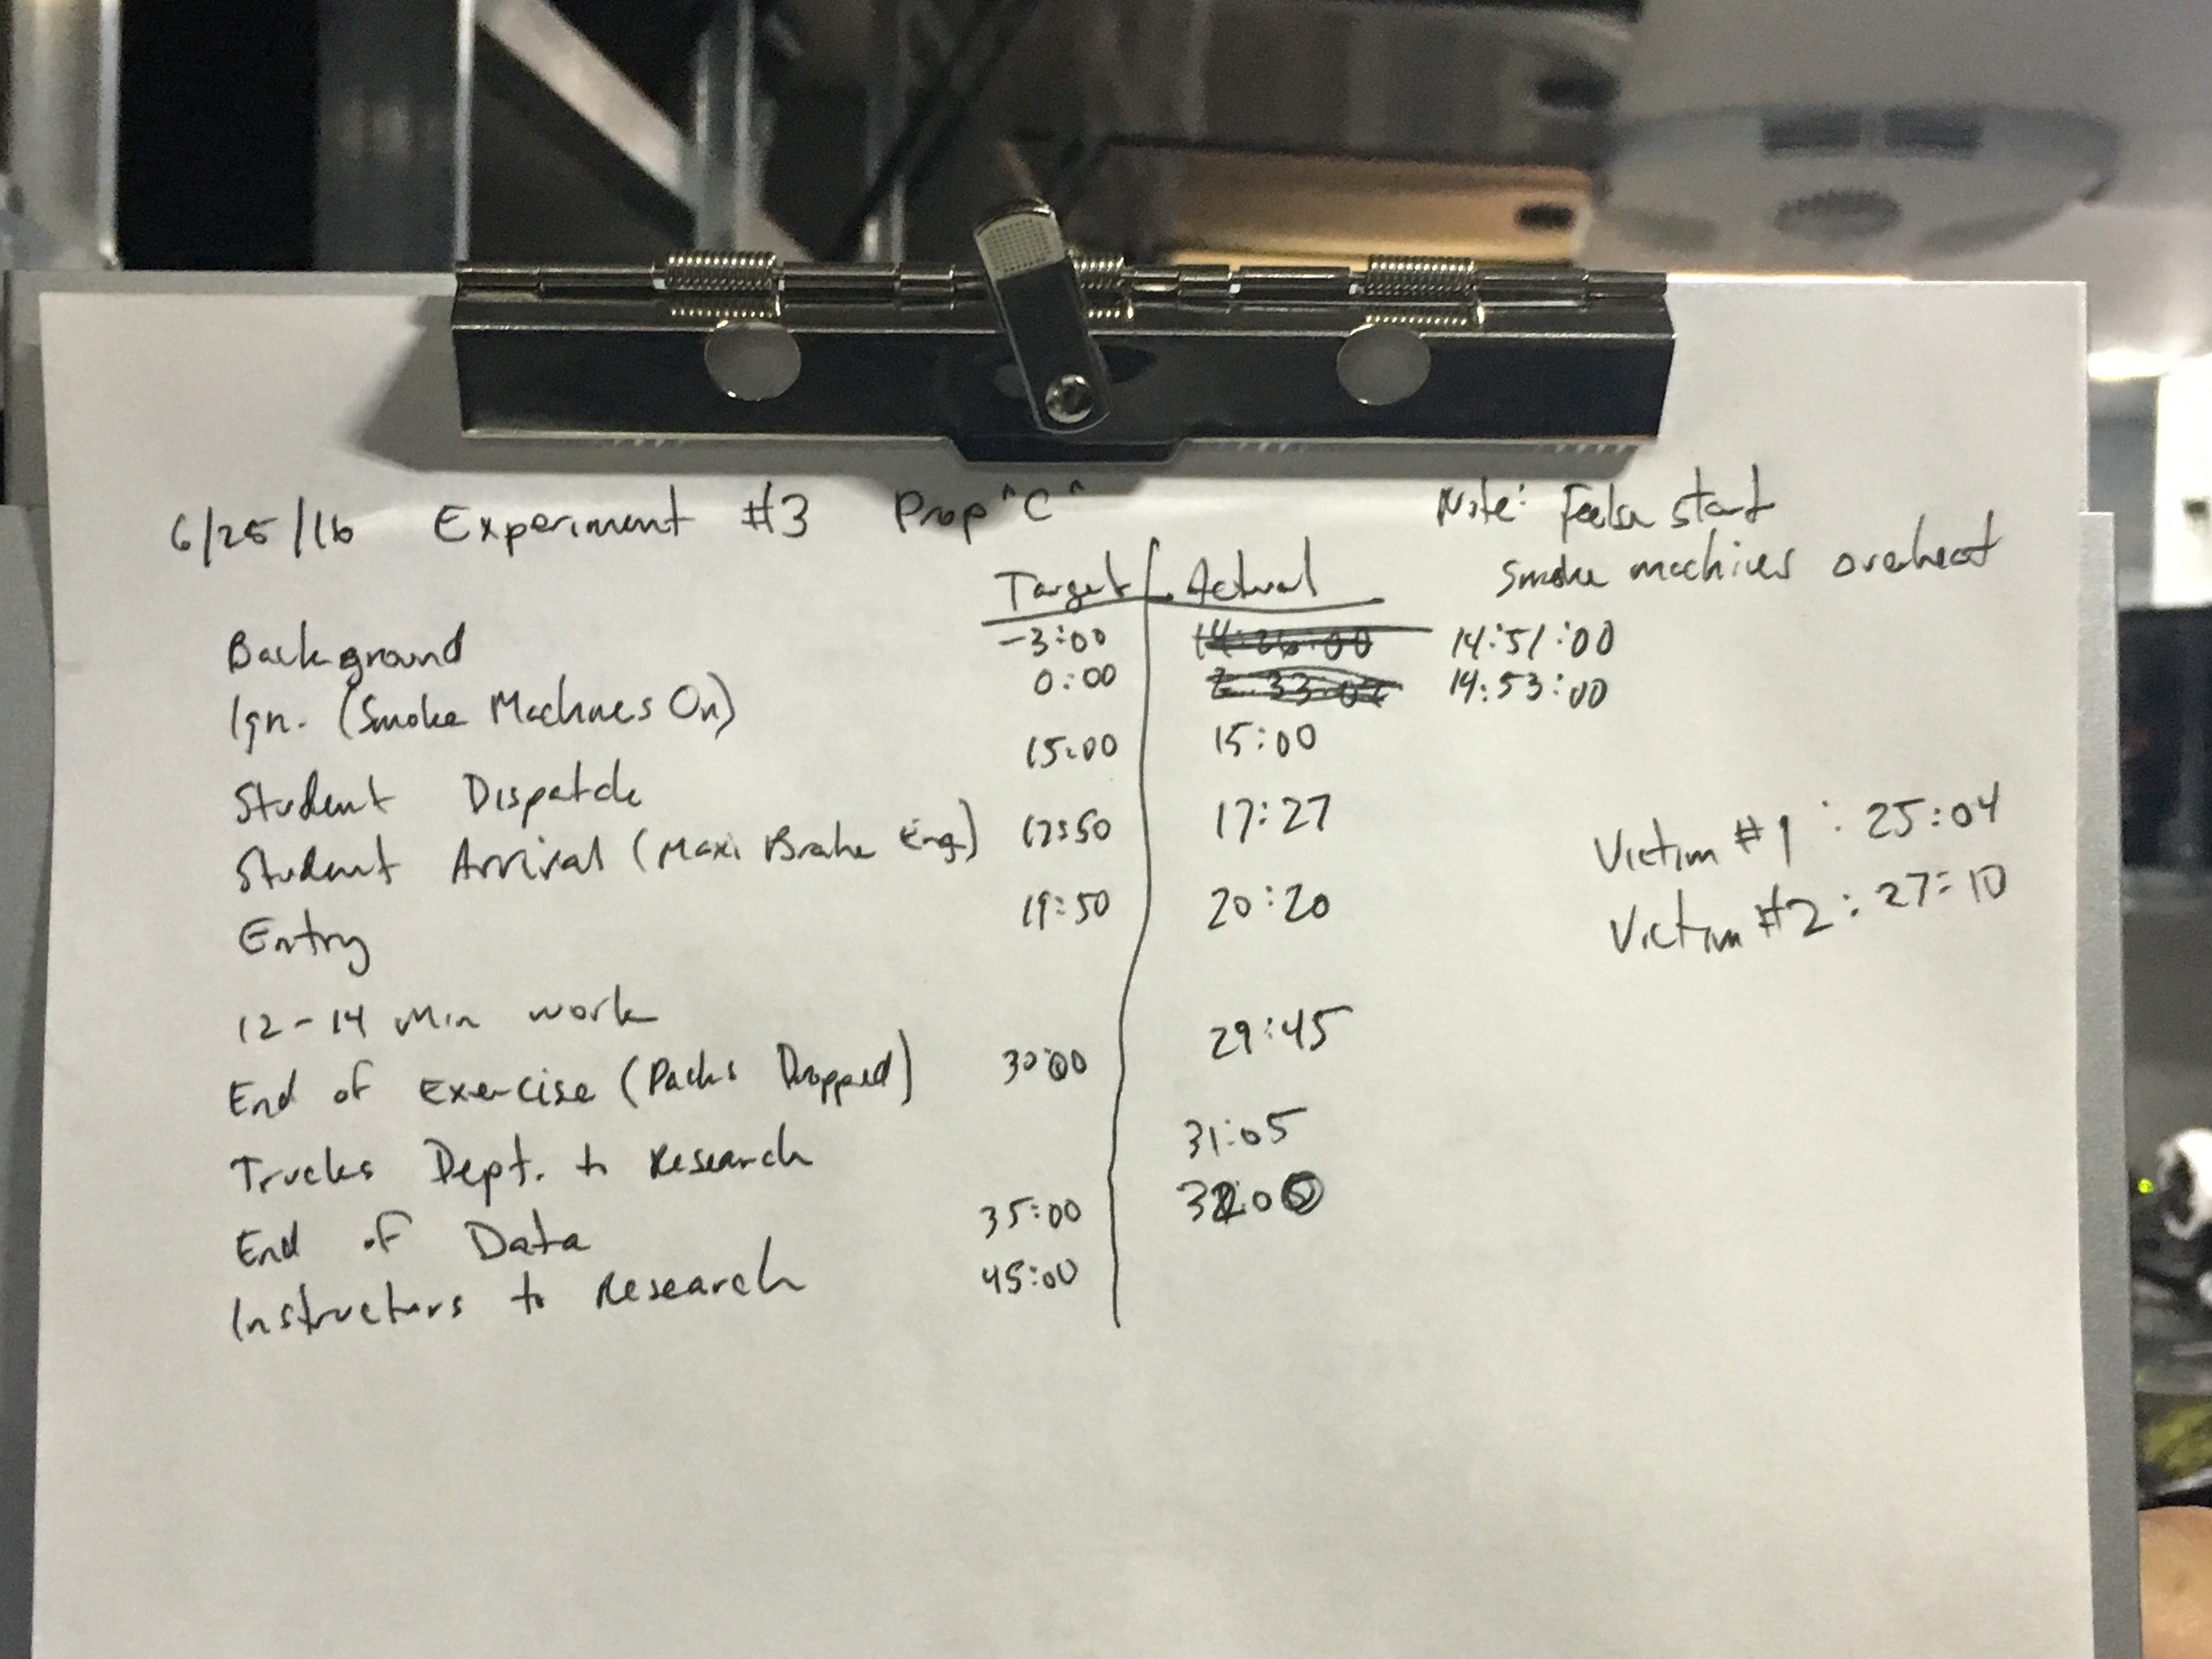 6/25/16 Experiment #3 Prop "C"
Note: Felse start
Smoke machines overheat
Target Actual
Background -3:00 14:26:00 14:51:00
Ign. (Smoke Machines On) 0:00 14:53:00
Student Dispatch 15:00 15:00
Student Arrival (Maxi Brake Eng.) 17:50 17:27
Victim #1 : 25:04
Entry 19:50 20:20
Victim #2 : 27:10
12-14 Min work
End of Exercise (Packs Dropped) 30:00 29:45
Trucks Dept. to Research 31:05
End of Data 35:00
Instructors to Research 45:00